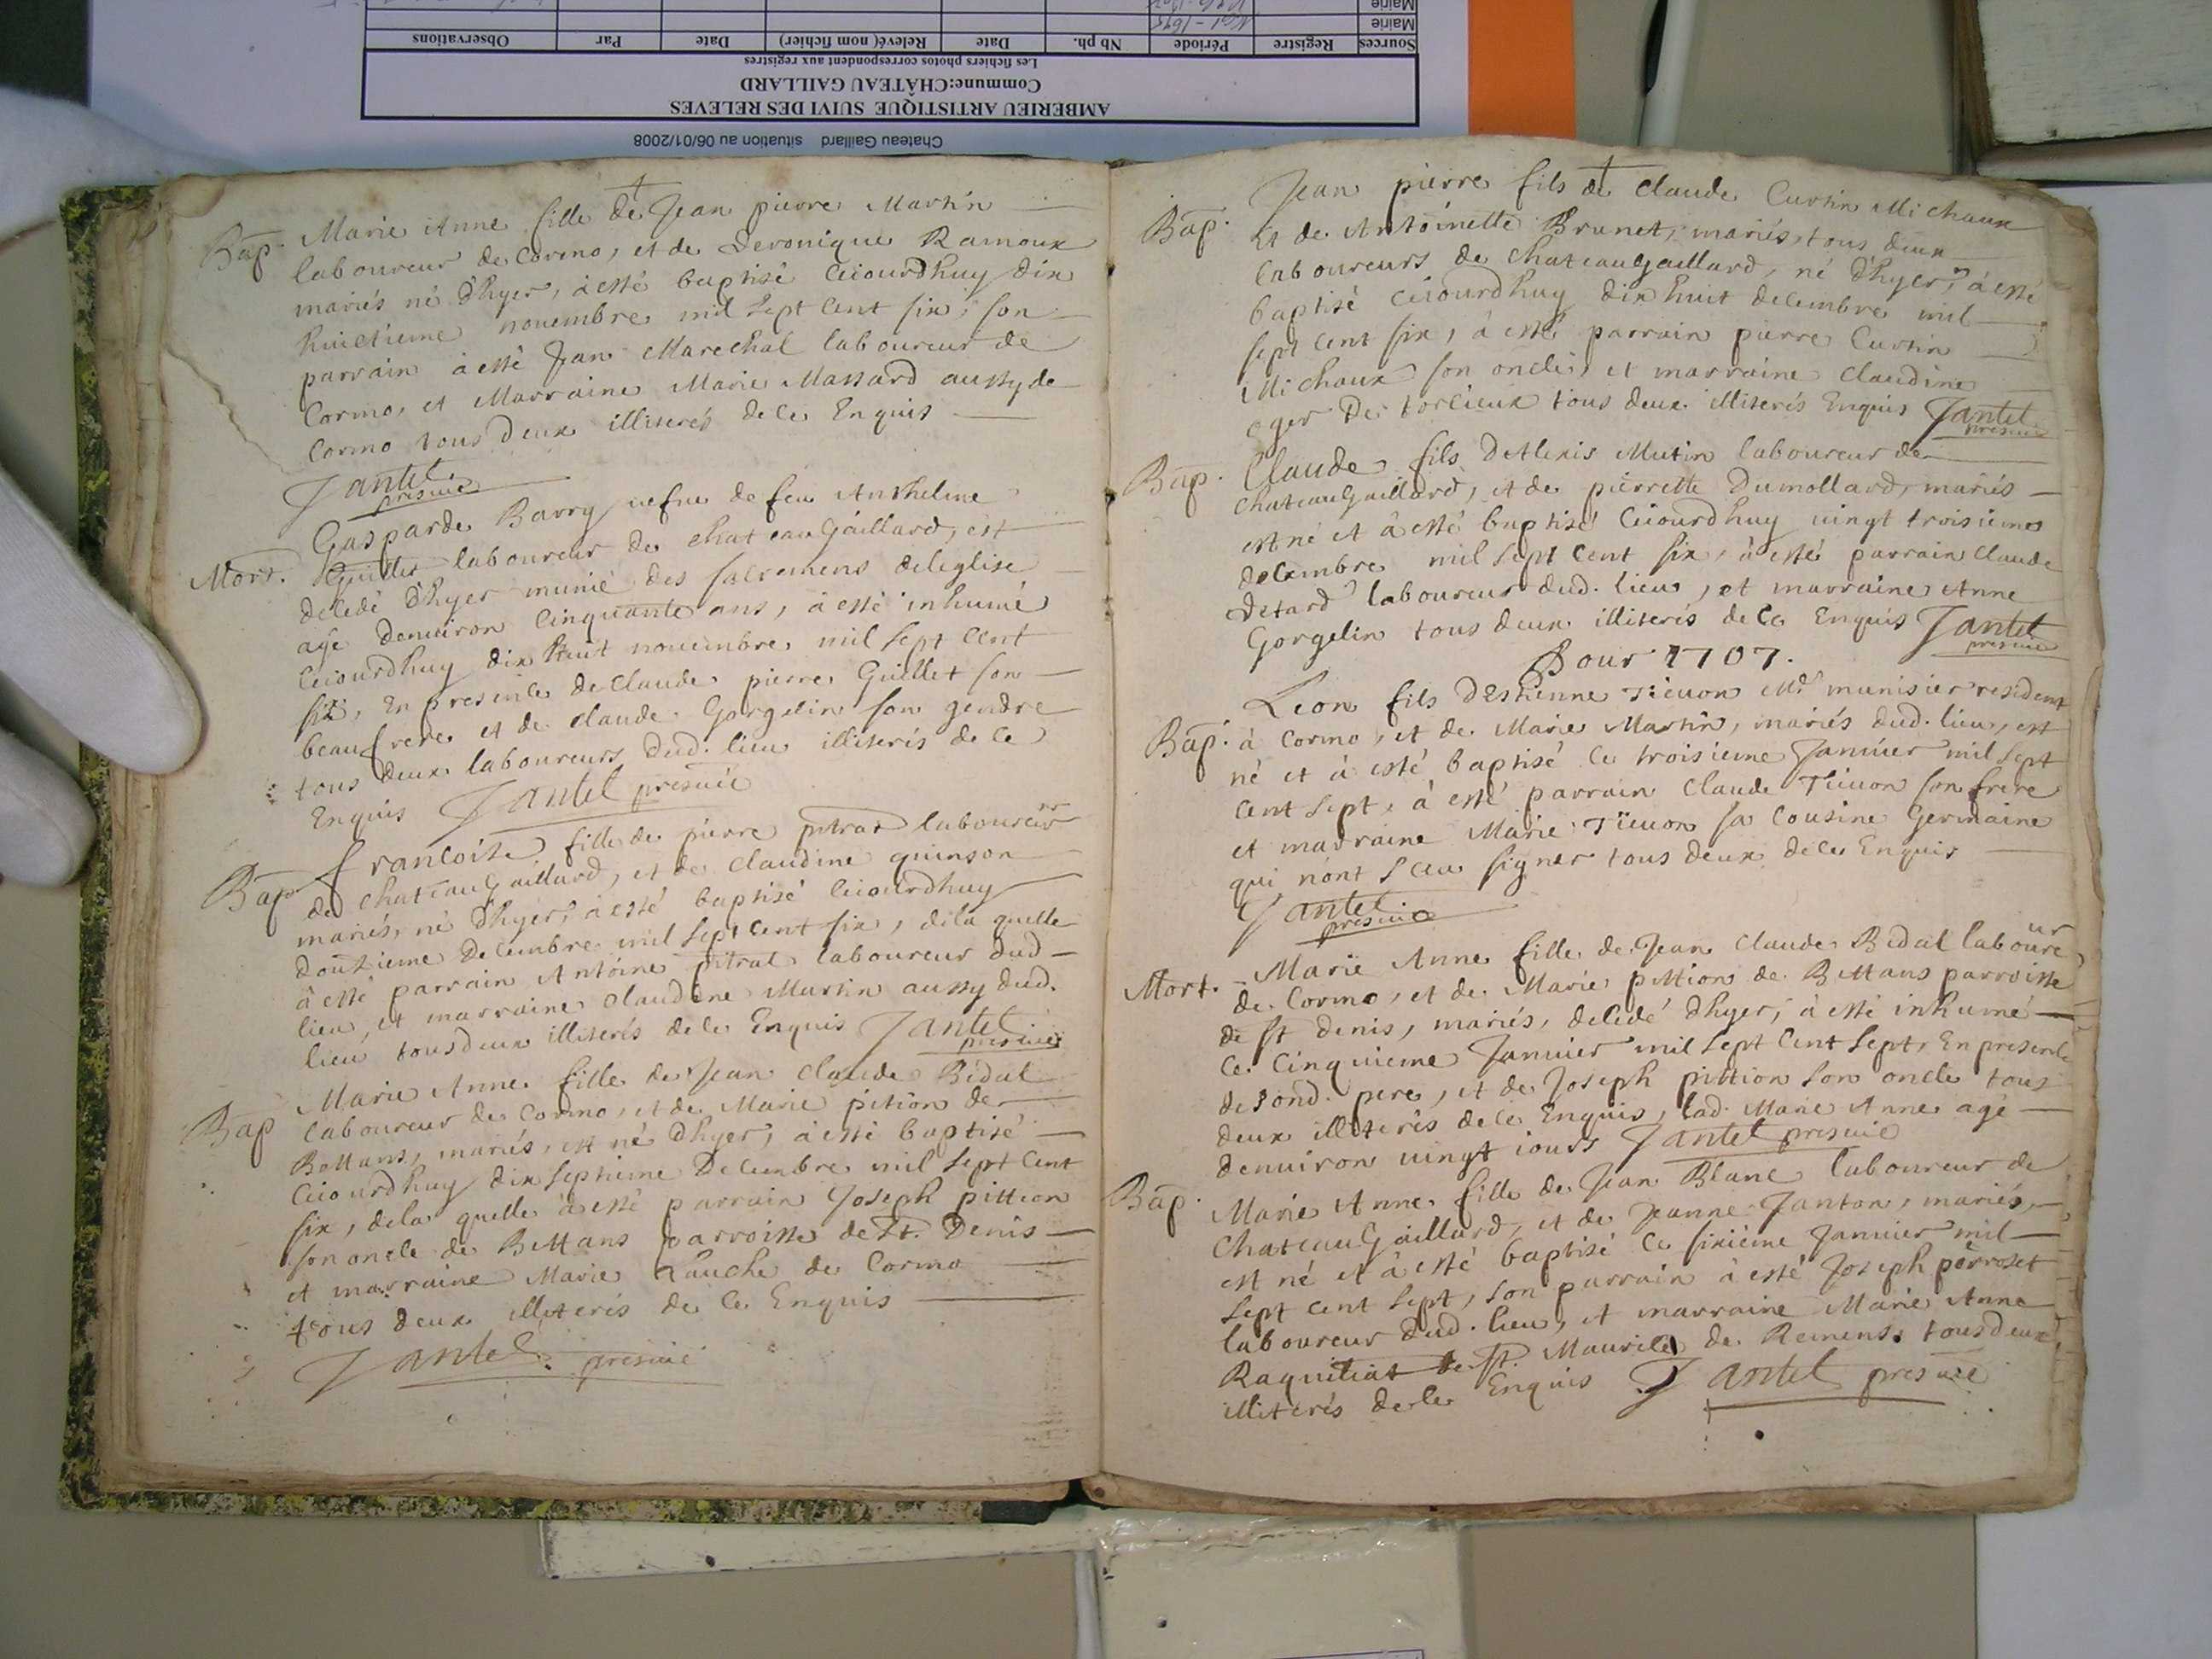 Chateau Gaillard situation au 06/01/2008
AMBERIEU ARTISTIQUE SUIVI DES RELEVES
Commune:CHÂTEAU GAILLARD
Les fichiers photos correspondent aux registres
Sources Registre Période Nb ph. Date Relevé( nom fichier) Date Par Observations
Mairie
Mairie
Bap. Marie Anne fille de Jean pierre Martin
laboureur de Cormo, et de Veronique Ramoux
mariés né d'hyer, à esté baptisé ceiourdhuy dix
huictieme nouembre mil sept cent six, son
parrain à esté Jean Marechal laboureur de
Cormo, et Marraine Marie Massard aussy de
Cormo tous deux illiterés de ce Enquis
Jantet
presuié
Gasparde Barry uefue de feu Anthelme
Mort. Guillet laboureur de chateauGaillard, est
decedé d'hyer munie des sacremens de leglise
agé denuiron Cinquante ans, à esté inhumé
ceiourdhuy dix huit nouembre mil sept cent
six, En presence de claude pierre Guillet son
beaufrere et de claude Gorgelin son gendre
tous deux laboureurs dud. lieu illiterés de ce
Enquis Jantet presuié
francoise fille de pierre pitrat laboureur
Bap de chateauGaillard, et de claudine quinson
mariés, né d'hyer, à esté baptisé ceiourdhuy
douzieme decembre mil sept cent six, de la quelle
à esté parrain Antoine pitrat laboureur dud
lieu, et marraine claudine Martin aussy dud.
lieu tous deux illiterés de ce Enquis Jantet
presuié
Marie Anne fille de Jean claude Bidal
Bap laboureur de Cormo, et de Marie pition de
Bettans, mariés, est né d'hyer, à esté baptisé
ceiourdhuy dix septieme Decembre mil sept cent
six, de la quelle à esté parrain Joseph pittion
son oncle de Bettans parroisse de St. Denis
et marraine Marie de Cormo
tous deux illiterés de ce Enquis
Jantet presuié
Jean pierre fils de claude Curtin Michaux
Bap. Et de Antoinette Brunet, mariés, tous deux
laboureurs de chateauGaillard, né d'hyer, à esté
baptisé ceiourdhuy dix huit decembre mil
sept cent six, à esté parrain pierre Curtin
Michaux son oncle, et marraine claudine
oger De torcieux tous deux illiterés Enquis Jantet
presuié
Bap. Claude fils d'Alexis Mutin laboureur de
chateauGaillard, et de pierrette Dumollard, mariés
est né et à esté baptisé ceiourdhuy uingt troisieme
decembre mil sept cent six, à esté parrain claude
Detard laboureur dud. lieu, et marraine Anne
Gorgelin tous deux illiterés de ce Enquis Jantet
presuié
Pour 1707.
Leon fils d'Estienne Tieuon Md munisier resident
Bap. à Cormo, et de Marie Martin, mariés dud. lieu, est
né et à esté baptisé ce troisieme Januier mil sept
cent sept, à esté parrain claude Tieuon son frere
et marraine Marie Tieuon sa cousine Germaine
qui n'ont sceu signer tous deux de ce Enquis
Jantet
presuié
Marie Anne fille de Jean claude Bidal laboureur
Mort. de Cormo, et de Marie pittion de Bettans parroisse
de St Denis, mariés, decedé d'hyer, à esté inhumé
ce Cinquieme Januier mil sept cent sept, En presence
de sond. pere, et de Joseph pittion son oncle tous
deux illiterés de ce Enquis, lad. Marie Anne agé
denuiron uingt iours Jantet presuié
Bap. Marie Anne fille de Jean Blanc laboureur de
chateauGaillard, et de Jeanne Janton, mariés,
est né et à esté baptisé ce sixieme Januier mil
sept cent sept, son parrain à esté Joseph perroset
laboureur dud. lieu, et marraine Marie Anne
Raquitiat de St. Maurice de Remens, tous deux
illiterés de ce Enquis Jantet presuié